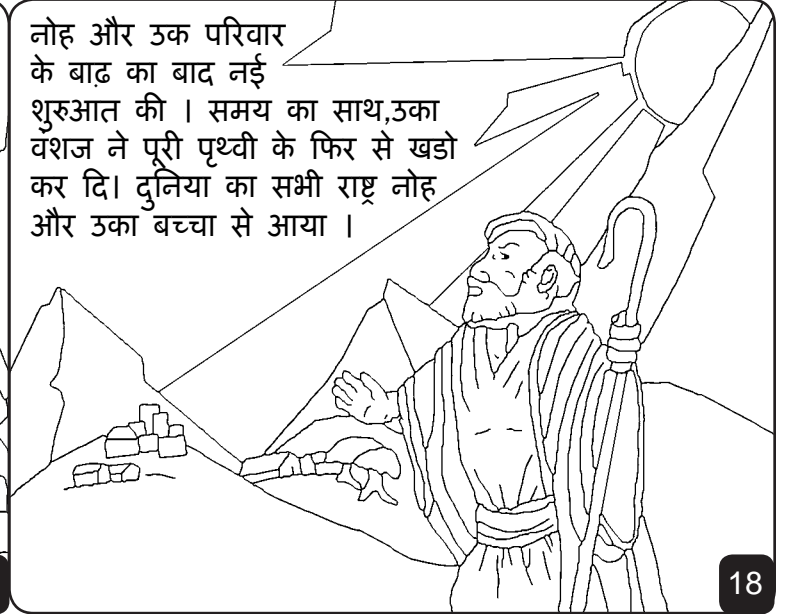 नोह और उक परिवार
के बाढ़ का बाद नई
शुरुआत की । समय का साथ,उका
वंशज ने पूरी पृथ्वी के फिर से खडो
कर दि। दुनिया का सभी राष्ट्र नोह
और उका बच्चा से आया ।
18